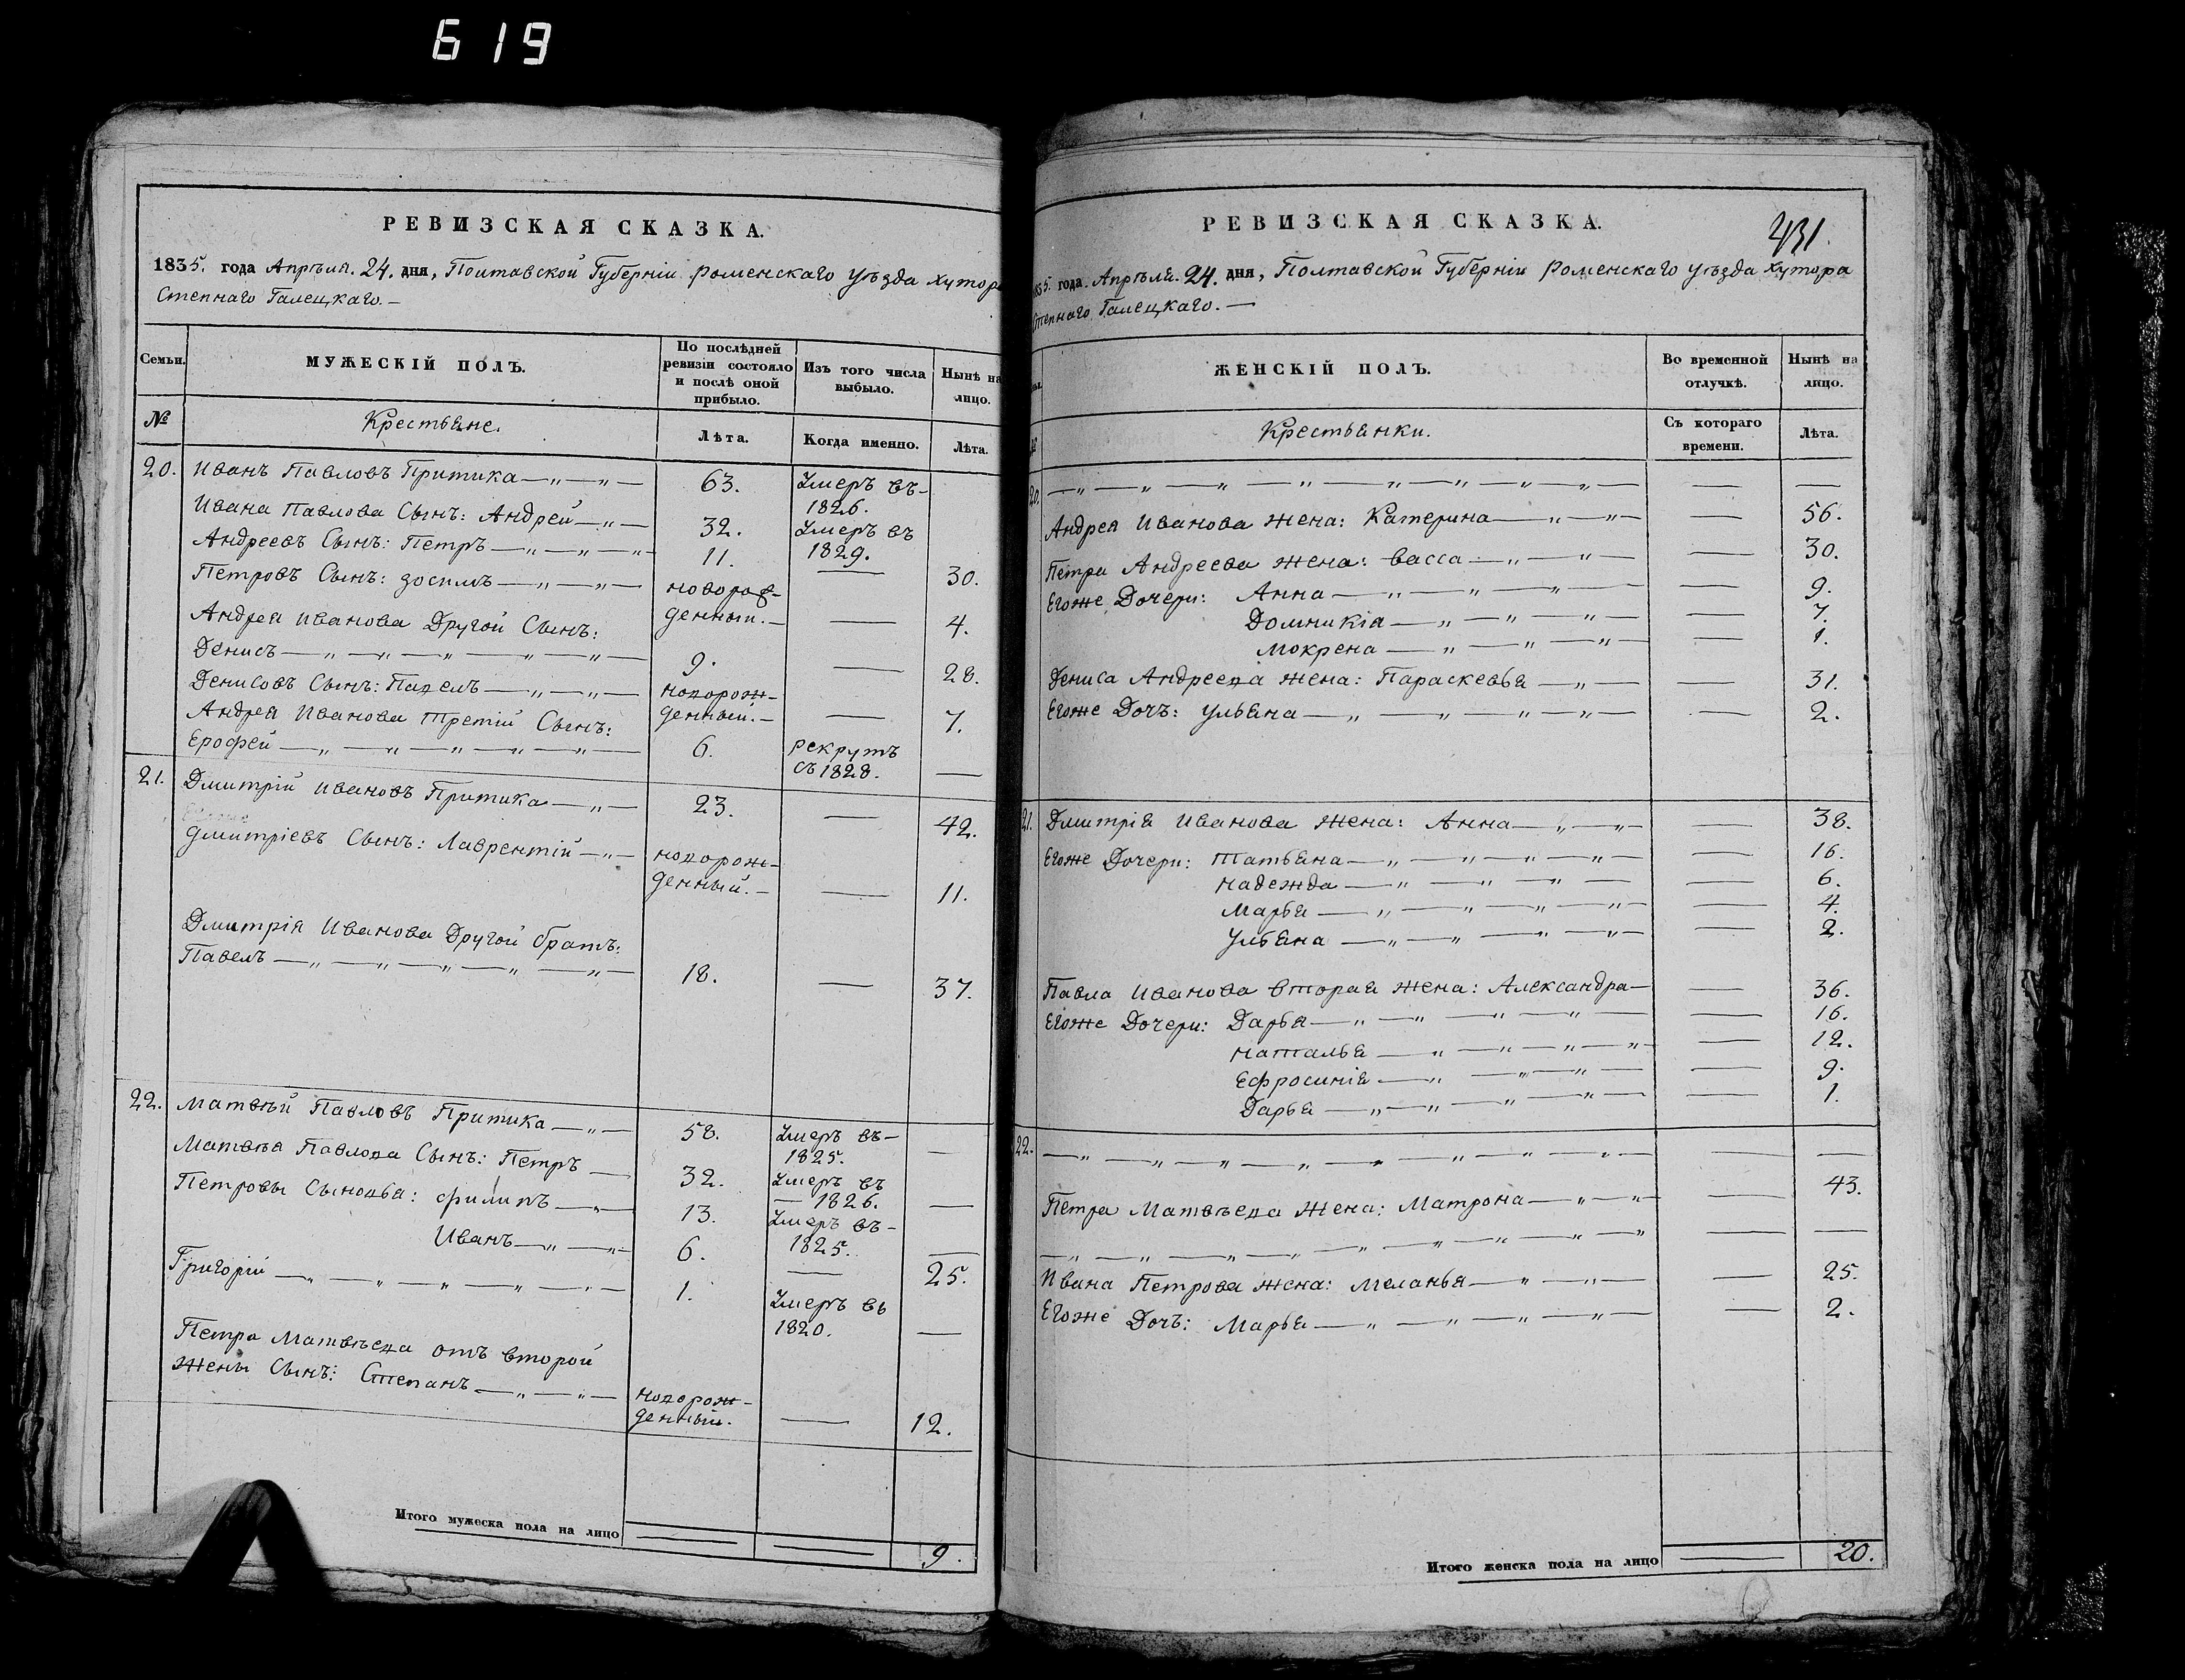 619
РЕВИЗСКАЯ СКАЗКА.
1835. года Апрѣля. 24. дня, Полтавской Губерніи Роменскаго уѣзда Хутора
Степнаго Галецкаго.—
Семьи. МУЖЕСКІЙ ПОЛЪ. По послѣдней ревизіи состояло и послѣ оной прибыло. Изъ того числа выбыло. Нынѣ на лицо.
№ Крестьяне. Лѣта. Когда именно. Лѣта.
20. Иванъ Павловъ Притика —„—„— 63. Умеръ въ— 1826.
Ивана Павлова Сынъ: Андрей —„— 32. Умеръ въ 1829.
Андреевъ Сынъ: Петръ —„—„—„— 11. — 30.
Петровъ Сынъ: Зосимъ —„—„— новорожденный.— — 4.
Андрея Иванова Другой Сынъ:
Денисъ —„—„—„—„—„— 9. — 28.
Денисовъ Сынъ: Павелъ —„—„— новорожденный.— — 7.
Андрея Иванова Третій Сынъ:
Ерофей —„—„—„—„—„— 6. рекрутъ съ 1828. —
21. Дмитрій Ивановъ Притика —„— 23. — 42.
Дмитріевъ Сынъ: Лаврентій —„— новорожденный.— — 11.
Дмитрія Иванова Другой братъ:
Павелъ —„—„—„—„—„— 18. — 37.
22. Матвѣй Павловъ Притика —„— 58. Умеръ въ— 1825. —
Матвѣя Павлова Сынъ: Петръ — 32. Умеръ въ — 1826. —
Петровы Сыновья: Филипъ —„— 13. Умеръ въ— 1825. —
Иванъ —„—„— 6. — 25.
Григорій —„—„—„—„—„— 1. Умеръ въ 1820. —
Петра Матвѣева отъ второй
жены Сынъ: Степанъ —„—„— новорожденный. — 12.
Итого мужеска пола на лицо 9.
РЕВИЗСКАЯ СКАЗКА.
431.
1835. года. Апрѣля. 24. дня, Полтавской Губерніи Роменскаго уѣзда Хутора
Степнаго Галецкаго.—
ЖЕНСКІЙ ПОЛЪ. Во временной отлучкѣ. Нынѣ на лицо.
Крестьянки. Съ котораго времени. Лѣта.
20. —„—„—„—„—„—„—„— — —
Андрея Иванова жена: Катерина —„—„— — 56.
Петра Андреева жена: Васса —„—„— — 30.
Егоже Дочери: Анна —„—„—„— — 9.
Домникія —„—„—„— — 7.
Мокрена —„—„—„— — 1.
Дениса Андреева жена: Параскевья —„— — 31.
Егоже Дочь: Ульяна —„—„—„—„— — 2.
21. Дмитрія Иванова жена: Анна —„—„— — 38.
Егоже Дочери: Татьяна —„—„—„—„— — 16.
Надежда —„—„—„— — 6.
Марья —„—„—„—„— — 4.
Ульяна —„—„—„—„— — 2.
Павла Иванова вторая жена: Александра — — 36.
Егоже Дочери: Дарья —„—„—„—„— — 16.
Наталья —„—„—„—„— — 12.
Ефросинія —„—„—„— — 9.
Дарья —„—„—„—„— — 1.
22. —„—„—„—„—„—„—„—„— — —
Петра Матвѣева жена: Матрона —„—„— — 43.
—„—„—„—„—„—„—„—„— — —
Ивана Петрова жена: Меланья —„—„— — 25.
Егоже Дочь: Марья —„—„—„—„— — 2.
Итого женска пола на лицо 20.